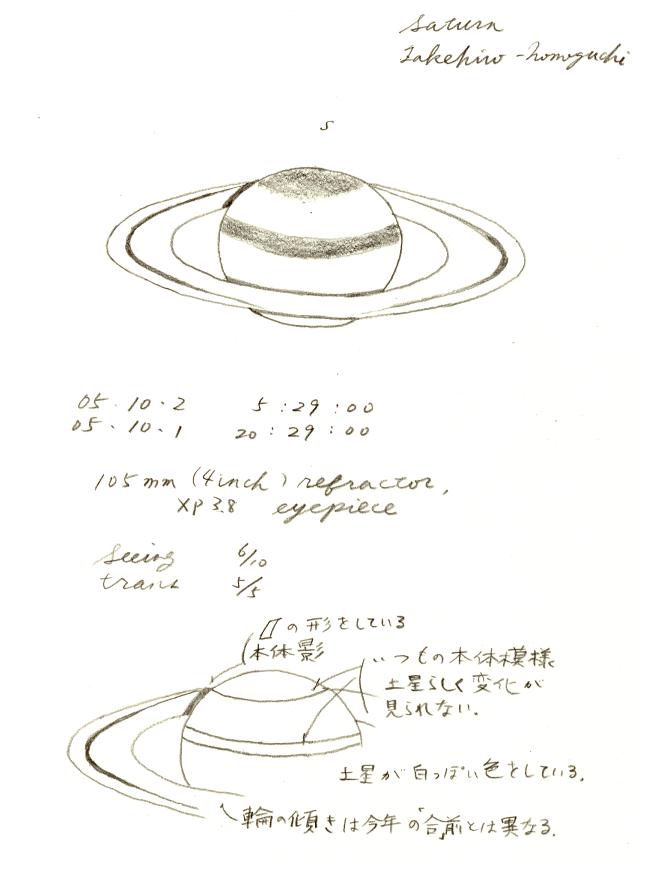 Saturn
Takehiro-Homoguchi
S
05.10.2 5:29:00
05.10.1 20:29:00
105mm (4inch) refractor,
XP 3.8 eyepiece
Seeing 6/10
trans 5/5
の形をしている
本体影
いつもの本体模様
土星らしく変化が
見られない.
土星が白っぽい色をしている.
輪の傾きは今年の「合」前とは異なる.